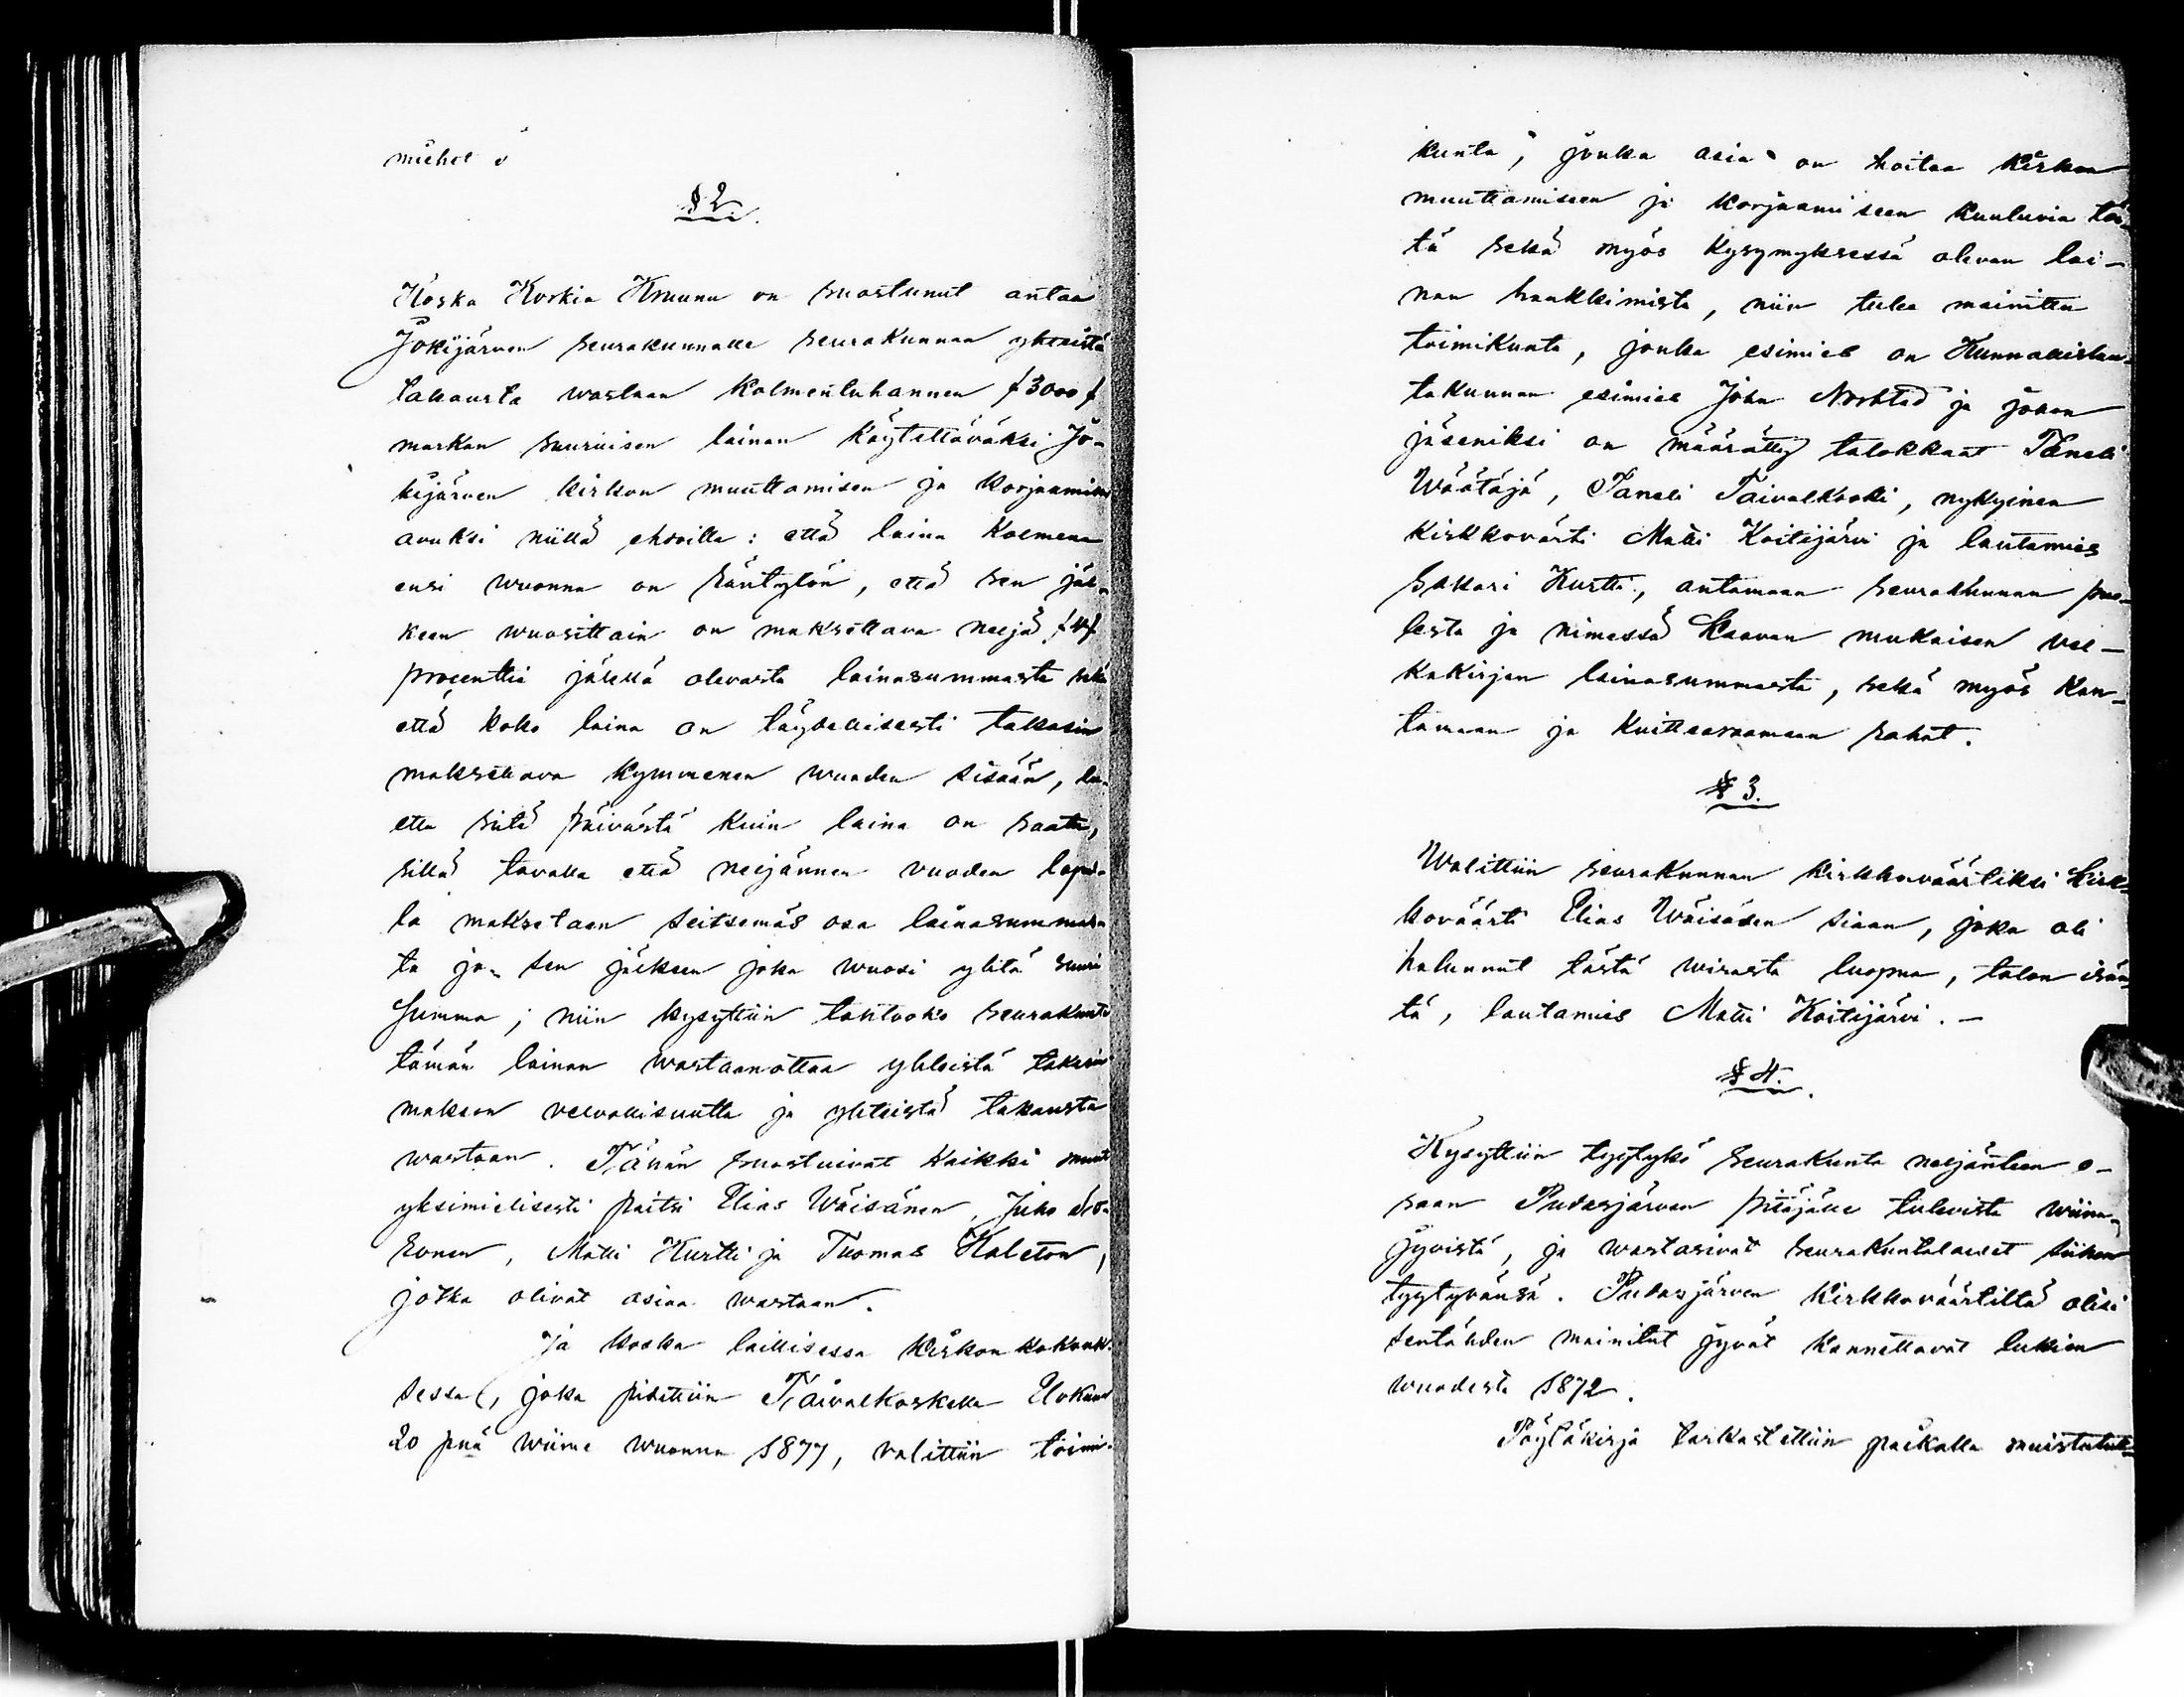 miehet
§ 2.
Koska Korkia Kruunu on suostunut antaa
Jokijärven seurakunnalle seurakunnan yhteistä
takausta wastaan kolmentuhannen /3000/
markan suuruisen lainan käytettäväksi Jo-
kijärven kirkon muuttamisen ja korjaamisen
avuksi niillä ehdoilla: että laina kolmena
ensi wuonna on käntytön, että sen jäl-
keen wuosittain on maksettava neljä /4/
procenttia jälellä olevasta lainasummasta sekä
että koko laina on täydellisesti takasin
maksettava kymmenen wuoden sisään, lu-
ettu siitä päivästä kuin laina on saatu,
sillä tavalla että neljännen vuoden lopul-
la maksetaan seitsemäs osa lainasummas-
ta ja sen jälkeen joka wuosi yhtä suuri
Summa; niin kysyttiin tahtooko seurakunta
tämän lainan wastaanottaa yhteistä takasin
makson velvollisuutta ja yhteistä takausta
wastaan. Tähän suostuivat kaikki muut
yksimielisesti paitsi Elias Wäisänen, Juho
Matti Kurtti ja Tuomas
jotka olivat asiaa wastaan.
Ja koska laillisessa kirkon kokouk-
sessa, joka pidettiin Taivalkoskella Elokuun
20 pnä wiime wuonna 1877, valittiin toimi-
kunta, jonka asia on hoitaa kirkon
muuttamiseen ja korjaamiseen kuuluvia töi-
tä sekä myös kysymyksessä olevan lai-
nan hankkimista, niin tulee mainitun
toimikunta, jonka esimies on Kunnallislau-
takunnan esimies Johan ja johon
jäseniksi on määrätty talokkaat Taneli
Wäätäjä, Taneli Taivalkoski, nykyinen
kirkkovärti Matti Koitijärvi ja lautamies
Sakari Kurtti, antamaan seurakunnan puo-
lesta ja nimessä kaavan mukaisen vel-
kakirjan lainasummasta, sekä myös kan-
tamaan ja kuitteeraamaan rahat.
§ 3.
Walittiin seurakunnan kirkkoväärtiksi kirk-
koväärti Elias Wäisäsen siaan, joka oli
halunnut tästä wirasta luopua, talon isän-
tä, lautamies Matti Koitijärvi. -
§ 4.
Kysyttiin tyytykö seurakunta neljänteen o-
saan Pudasjärven pitäjälle tulevista wiina-
jyvistä, ja wastasivat seurakuntalaiset siihen
tyytyvänsä. Pudasjärven kirkkoväärtiltä olisi
sentähden mainitut jyvät kannettavat lukien
wuodesta 1872.
Pöytäkirja tarkastettiin paikalla muistutuk-